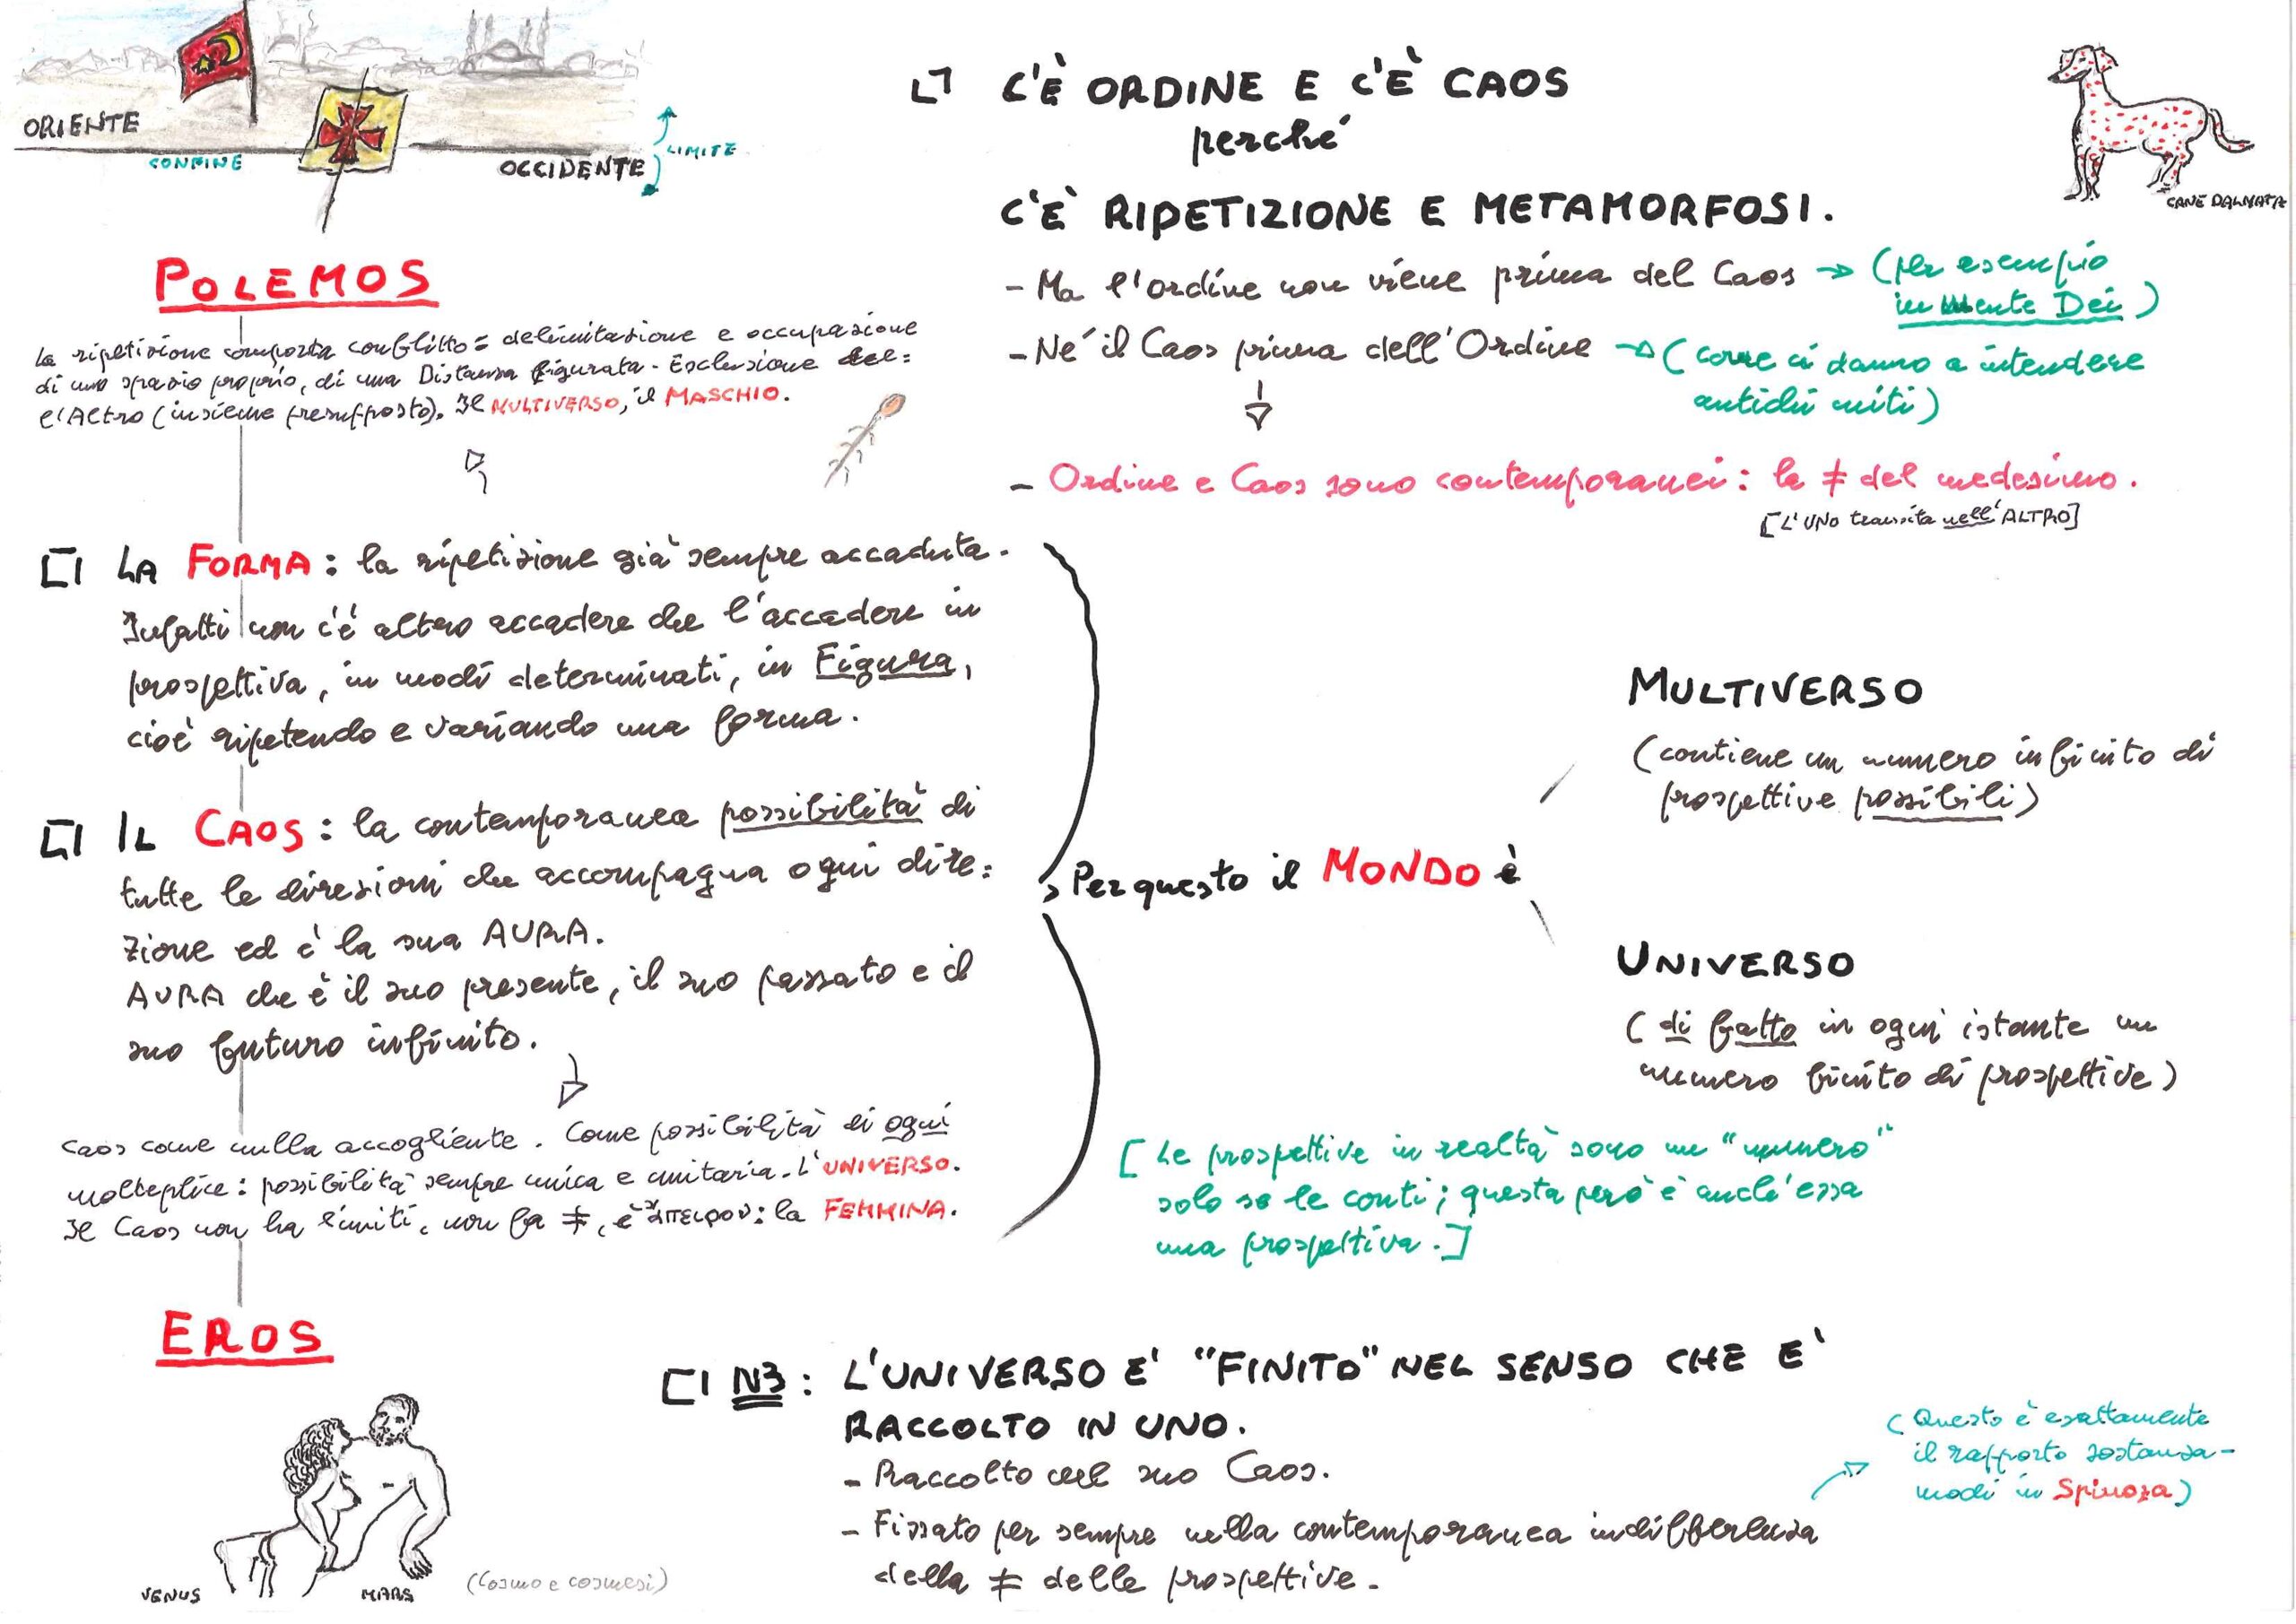 ORIENTE
CONFINE
OCCIDENTE
LIMITE
POLEMOS
La ripetizione comporta conflitto = delimitazione e occupazione
di uno spazio proprio, di una Distanza figurata - Esclusione del=
l'Altro (insieme presupposto). Il MULTIVERSO, il MASCHIO.
LA FORMA: la ripetizione già sempre accaduta.
Infatti non c'è altro accadere che l'accadere in
prospettiva, in modi determinati, in Figura,
cioè ripetendo e variando una forma.
IL CAOS: la contemporanea possibilità di
tutte le direzioni che accompagna ogni dire=
zione ed è la sua AURA.
AURA che è il suo presente, il suo passato e il
suo futuro infinito.
Caos come nulla accogliente. Come possibilità di ogni
molteplice: possibilità sempre unica e unitaria. L'UNIVERSO.
Il Caos non ha limiti, non fa ≠, è ἄπειρον: la FEMMINA.
EROS
VENUS
MARS
(Cosmo e cosmesi)
C'È ORDINE E C'È CAOS
perché
C'E' RIPETIZIONE E METAMORFOSI.
- Ma l'ordine non viene prima del Caos → (per esempio
in mente Dei)
- Né il Caos prima dell'Ordine → (come ci danno a intendere
antichi miti)
- Ordine e Caos sono contemporanei: la ≠ del medesimo.
[L'UNO transita nell'ALTRO]
CANE DALMATA
Per questo il MONDO è
MULTIVERSO
(contiene un numero infinito di
prospettive possibili)
UNIVERSO
(di fatto in ogni istante un
numero finito di prospettive)
[Le prospettive in realtà sono un "numero"
solo se le conti; questa però è anch'essa
una prospettiva.]
N3: L'UNIVERSO E' "FINITO" NEL SENSO CHE E'
RACCOLTO IN UNO.
- Raccolto nel suo Caos.
- Fissato per sempre nella contemporanea indifferenza
della ≠ delle prospettive.
(Questo è esattamente
il rapporto sostanza-
modi in Spinoza)